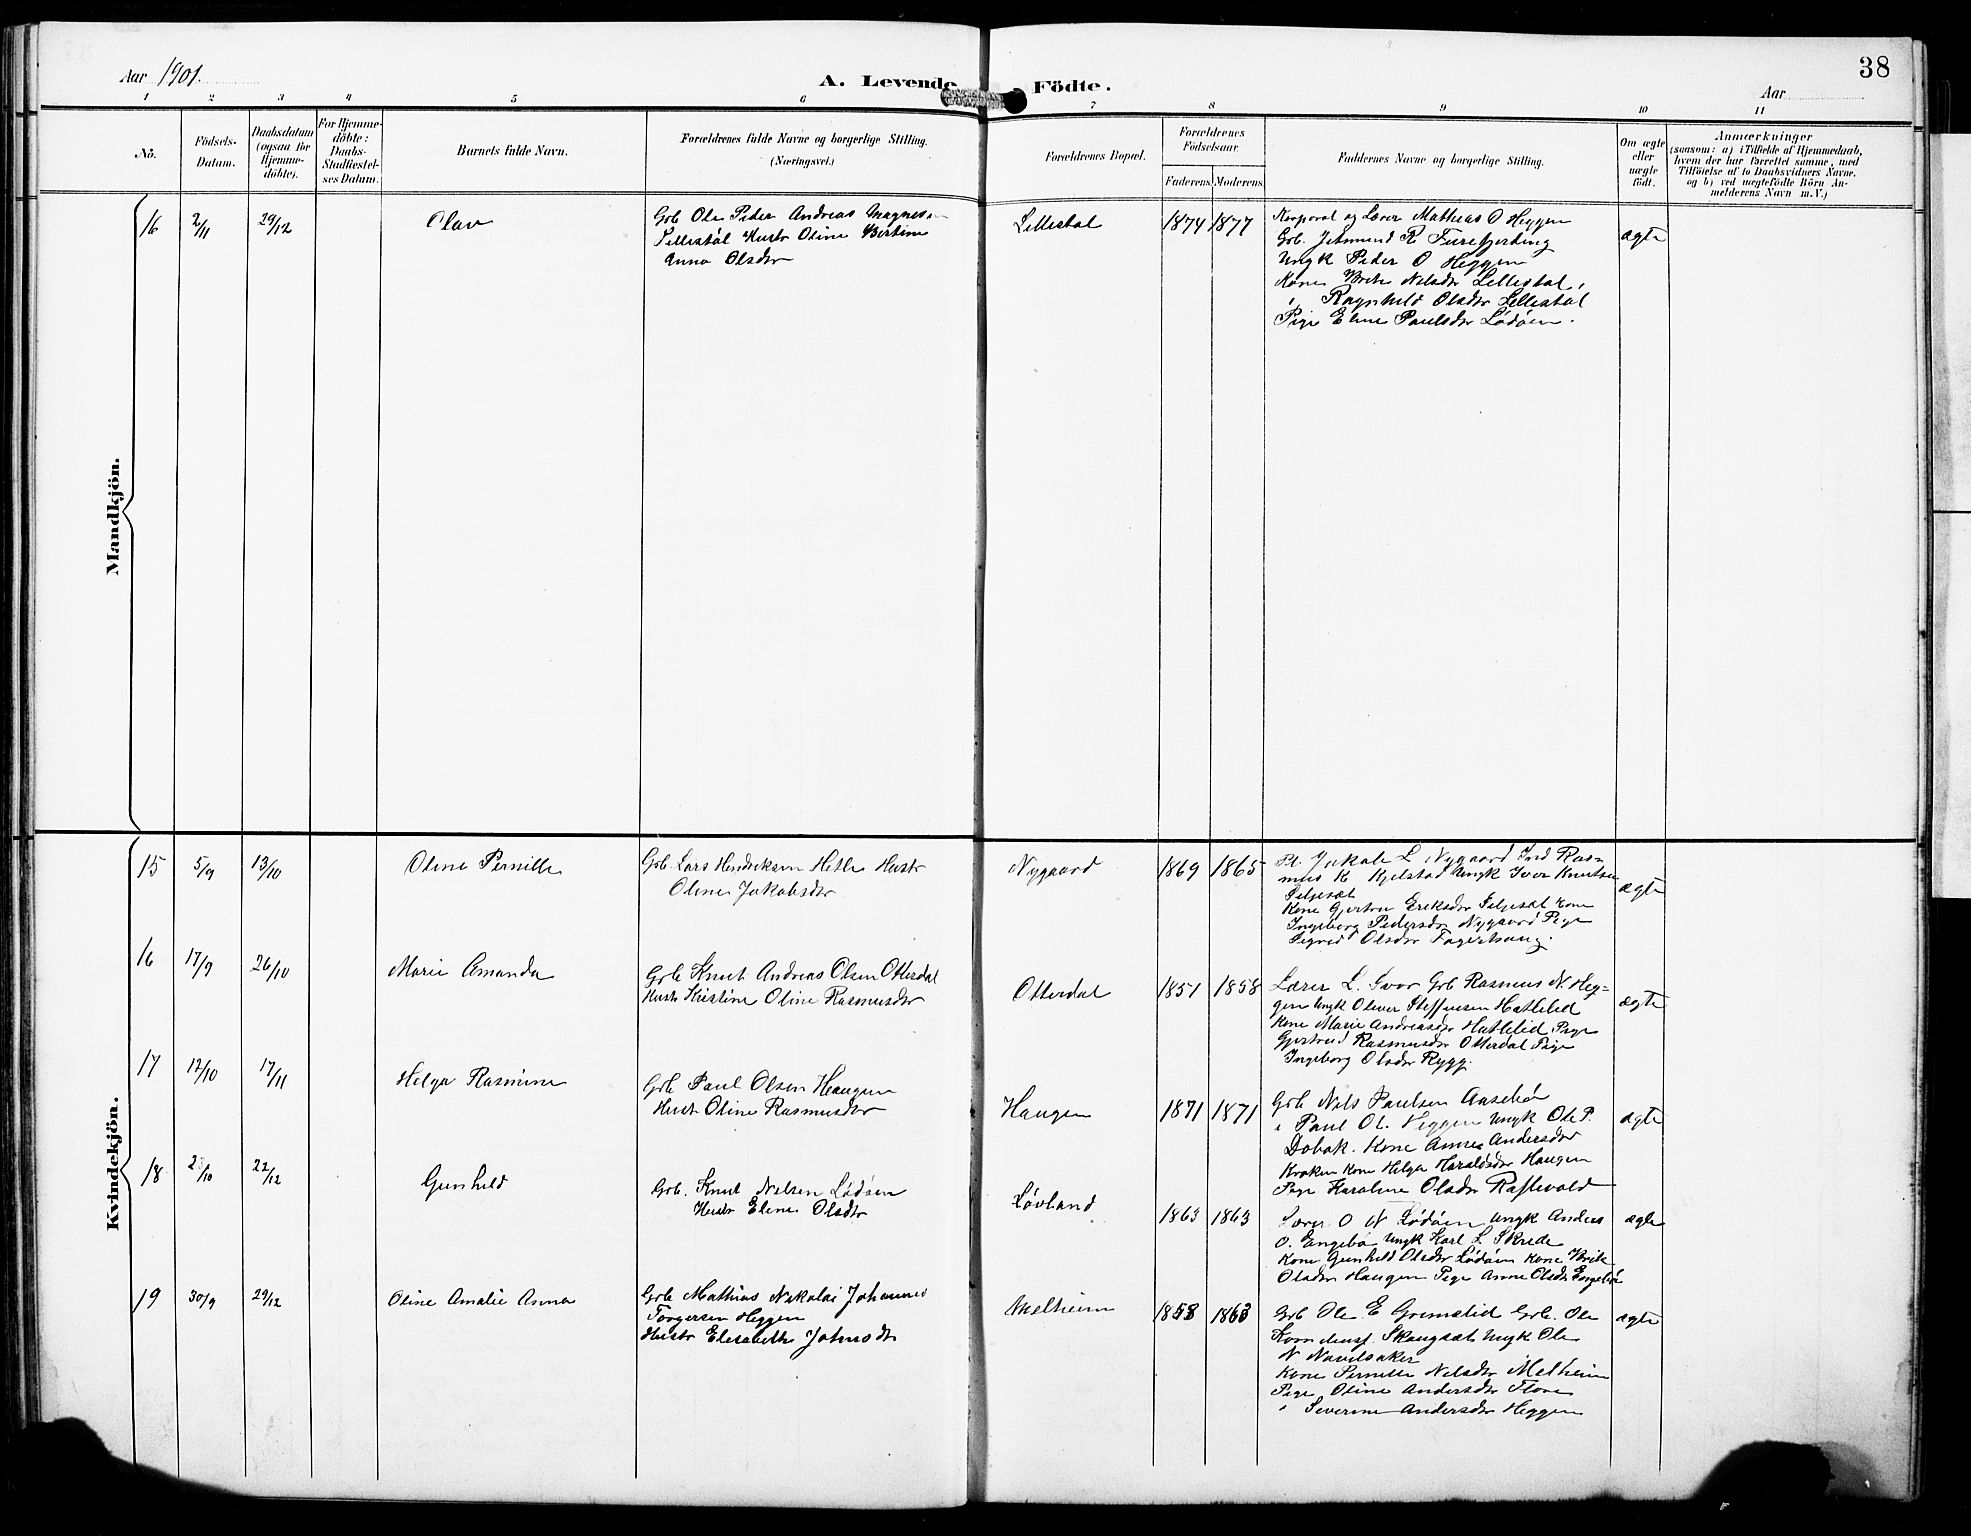 38
Aar 1901.
A. Levende Födte.
Aar
1 2 3 4 5 6 7 8 9 10 11
No.
Födsels-
Datum.
Daabsdatum
(ogsaa for
Hjemme-
döbte).
For Hjemme-
döbte:
Daabs-
Stadfæstel-
ses Datum.
Barnets fulde Navn.
Forældrenes fulde Navne og borgerlige Stilling.
(Næringsvei.)
Forældrenes Bopæl.
Forældrenes
Födselsaar.
Faderens.
Moderens.
Faddernes Navne og borgerlige Stilling.
Om ægte
eller
uægte
født.
Anmærkninger
(saasom: a) i Tilfælde af Hjemmedaab,
hvem der har forrettet samme, med
Tilföielse af to Daabsvidners Navne,
og b) ved uægtefödte Börn An-
melderens Navn m. V.)
Mandkjön.
16 2/11 29/12 Olav
Grb Ole Peder Andreas Magnesen
Lillestöl Hustr Oline Bertine
Anna Olsdtr
Lillestöl 1874 1877
Korporal og Lærer Mathias O Heggen
Grb. Jetmund R Furefjerding
Ungk Peder O Heggen
Kone Brite Nilsdtr Lillestöl,
" Ragnhild Olsdtr Lillestöl
Pige Eline Paulsdtr Lödöen.
ægte
Kvindekjön.
15 5/9 13/10 Oline Pernille
Grb Lars Hendriksen Hetle Hustr
Oline Jakobsdtr
Nygaard 1869 1865
Jakob L Nygaard Ind Ras-
mus K Kjelstad Ungk Iver Knutsen
Seljeset
Kone Gjertrue Eriksdtr Seljeset Kone
Ingeborg Pedersdtr Nygaard Pige
Sigrid Olsdtr Fagerhaug.
ægte
16 17/9 26/10 Marie Amanda
Grb Knut Andreas Olsen Otterdal
Hustr Kristine Oline Rasmusdtr
Otterdal 1851 1858
Lærer L. Svor Grb Rasmus N. Heg-
gen Ungk Oliver Steffensen Hatlelid
Kone Marie Andreasdtr Hatlelid Pige
Gjertrud Rasmusdtr Otterdal Pige
Ingeborg Olsdtr Rygg.
ægte
17 12/10 17/11 Helga Rasmine
Grb Paul Olsen Haugen
Hust Oline Rasmusdtr
Haugen 1871 1871
Grb Nils Paulsen Aasebø
" Paul Ol. Heggen Ungk Ole P.
Dobak. Kone Anne Andersdtr
Kroken Kone Helga Haraldsdtr Haugen
Pige Karoline Olsdtr Raftevold
ægte
18 /10 22/12 Gunhild
Grb. Knut Nilsen Lödöen
Hustr Eline Olsdtr
Løvland 1863 1863
Lærer O N Lödöen Ungk Anders
O. Engebø Ungk Karl L Skrede
Kone Gunhild Olsdtr Lödöen Kone Brite
Olsdtr Haugen Pige Anne Olsdtr Engebö
ægte
19 30/9 29/12 Oline Amalie Anna
Grb Mathias Nikolai Johannes
Torgersen Heggen
Hustr Elisabeth Johnsdtr
Melheim 1858 1863
Grb Ole E Gremslid Grb. Ole
Skaugset Ungk Ole
N Navelsaker
Kone Pernille Nilsdtr Melheim
Pige Oline Andersdtr Flore
" Severine Andersdtr Heggen
ægte